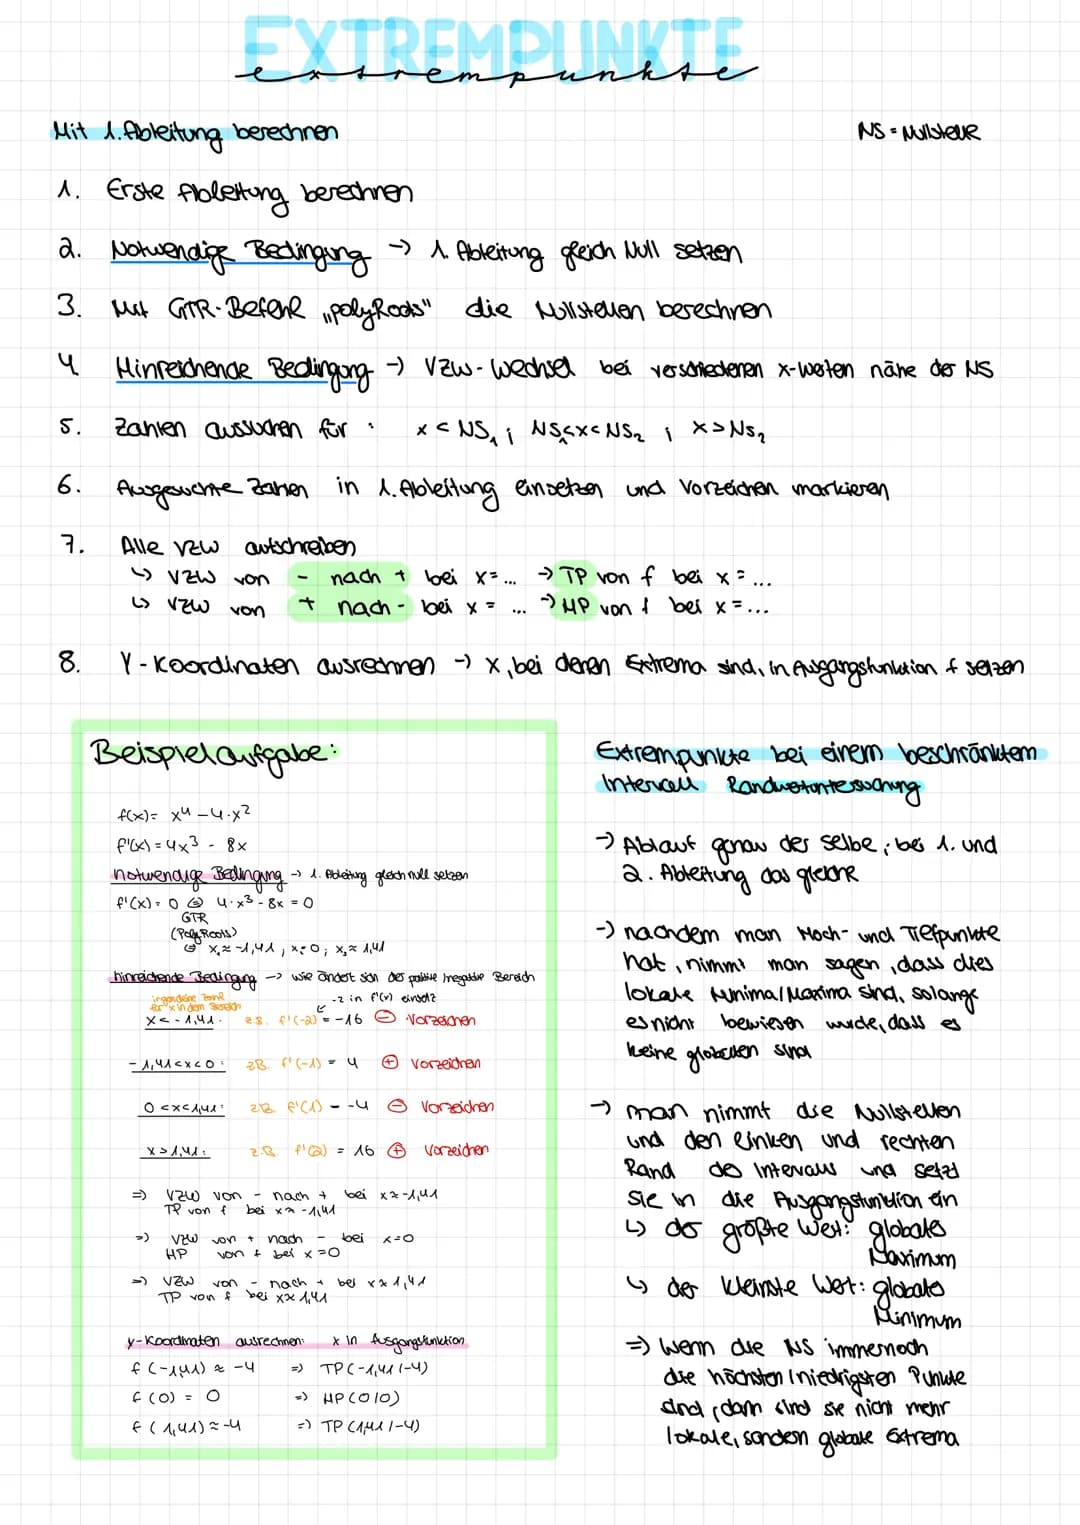 EXTREMPUNKTE
extrempunkte
Mit 1. Ableitung berechnen
NS = Nullstelle
1. Erste Ableitung berechnen
2. Notwendige Bedingung → 1. Ableitung gleich Null setzen
3. Mit GTR-Befehl „polyRoots" die Nullstellen berechnen
4 Hinreichende Bedingung → VZW-Wechsel bei verschiedenen x-Werten nähe der NS
5. Zahlen aussuchen für : x < NS₁ ; NS₁<x<NS₂ ; x>NS₂
6. Ausgesuchte Zahlen in 1. Ableitung einsetzen und Vorzeichen markieren
7. Alle VZW aufschreiben
↳ VZW von - nach + bei x=... → TP von f bei x=...
↳ VZW von + nach - bei x = ... → HP von f bei x=...
8. Y-Koordinaten ausrechnen → x, bei denen Extrema sind, in Ausgangsfunktion f setzen
Beispielaufgabe:
f(x)= x⁴ -4·x²
f'(x) = 4x³ - 8x
notwendige Bedingung → 1. Ableitung gleich null setzen
f'(x) = 0 ⇔ 4·x³-8x = 0
GTR
(PolyRoots)
⇔ x₁≈-1,41 ; x=0 ; x₂≈ 1,41
hinreichende Bedingung → wie ändert sich der positive/negative Bereich
irgendeine Zahl
für x in dem Bereich
-2 in f'(x) einsetz
x < -1,41: z.B. f'(-2) = -16 ⊖ Vorzeichen
-1,41<x<0: zB. f'(-1) = 4 ⊕ Vorzeichen
0<x<1,41: z.B. f'(1) = -4 ⊖ Vorzeichen
x>1,41: z.B. f'(2) = 16 ⊕ Vorzeichen
⇒ VZW von - nach + bei x≈-1,41
TP von f bei x≈-1,41
⇒ VZW von + nach - bei x=0
HP von f bei x=0
⇒ VZW von - nach + bei x≈1,41
TP von f bei x≈1,41
y-Koordinaten ausrechnen: x in Ausgangsfunktion
f(-1,41) ≈ -4 ⇒ TP(-1,41/-4)
f(0) = 0 ⇒ HP(0/0)
f(1,41)≈-4 ⇒ TP(1,41/-4)
Extrempunkte bei einem beschränktem
Intervall Randwertuntersuchung
→ Ablauf genau der selbe; bei 1. und
2. Ableitung das gleiche
→ nachdem man Hoch- und Tiefpunkte
hat, nimmt man sagen, dass dies
lokale Minima/Maxima sind, solange
es nicht bewiesen wurde, dass es
keine globalen sind
→ man nimmt die Nullstellen
und den linken und rechten
Rand des Intervalls und setzt
sie in die Ausgangsfunktion ein
↳ der größte Wert: globales
Maximum
↳ der kleinste Wert: globales
Minimum
⇒ Wenn die NS immernoch
die höchsten/niedrigsten Punkte
sind, dann sind sie nicht mehr
lokale, sondern globale Extrema